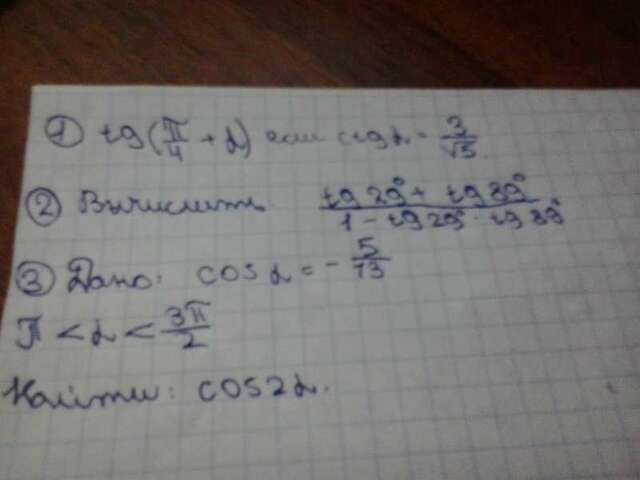 ① tg(π/4 + α) если ctgα = 3/√3.
② Вычислить (tg 29° + tg 89°)/(1 - tg 29° · tg 89°)
③ Дано: cos α = - 5/13
π < α < 3π/2
Найти: cos2α.